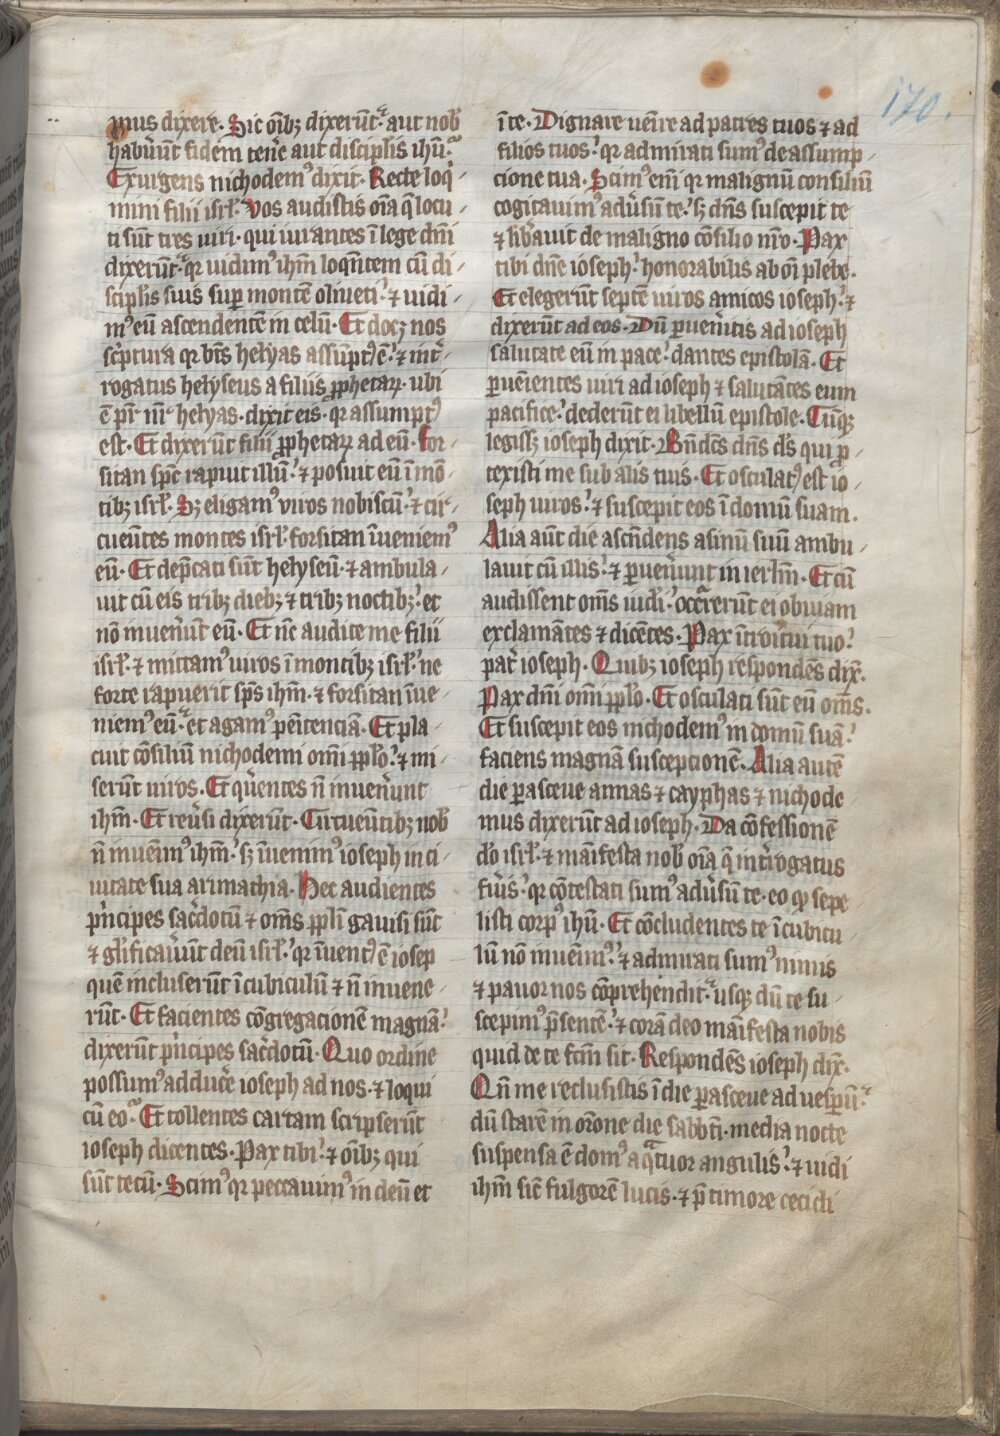 170.
mus dixere. Sic oīb; dixerūt. aut nob̄
habuūt fidem tenēe aut disciplis ihū.
Exurgens nichodemꝰ dixit. Recte loq̄
mini filii isrl̄. Vos audistis oīa q̄ locu
ti sūt tres uiri. qui iurantes ī lege dn̄i
dixerūt. qr uidimꝰ ihm̄ loqn̄tem cū di
sciplis suis suꝑ montē oliueti. ⁊ uidi
mꝰ eū ascendentē in celū. Et doc; nos
scⁱptura qr bt̄s helyas assūptꝰ ē. ⁊ int̄
rogatus helyseus a filiis ꝓphetaꝝ. ubi
ē pr̄ nr̄ helyas. dixit eis. qr assumptꝰ
est. Et dixerūt filii ꝓphetaꝝ ad eū. for
sitan spc̄ rapiuit illū. ⁊ posuit eū ī mō
tib; isrl̄. S; eligamꝰ viros nobiscū. ⁊ cir
cueūtes montes isrl̄. forsitan īueniemꝰ
eū. Et dep̄cati sūt helyseū. ⁊ ambula
uit cū eis trib; dieb; ⁊ trib; noctib;. et
nō inuen̄ūt eū. Et nc̄ audite me filii
isrl̄. ⁊ mittamꝰ uiros ī montib; isrl̄. ne
forte rapuerit sps̄ ihm̄. ⁊ forsitan īue
niemꝰ eū. et agamꝰ pēitenciā. Et pla
cuit cōsiliū nichodemi om̄i pplo. ⁊ mi
serūt uiros. Et qr̄entes n̄ inuen̄unt
ihm̄. Et reūsi dixerūt. Circueūtib; nob̄
n̄ inuēimꝰ ihm̄. s; īuenimꝰ ioseph in ci
uitate sua arimathia. Hec audientes
pⁱncipes sac̄dotū ⁊ om̄s ppli gauisi sūt
⁊ gl̄ificauūt deū isrl̄. qr īuentꝰ ē iosep
quē incluserūt ī cubiculū ⁊ n̄ inuene
rūt. Et facientes cōgregacionē magnā.
dixerūt pⁱncipes sac̄dotū. Quo ordine
possumꝰ adduc̄e ioseph ad nos. ⁊ loqui
cū eo. Et tollentes cartam scripserūt
ioseph dicentes. Pax tibi. ⁊ oīb; qui
sūt tecū. Scimꝰ qr peccauimꝰ in deū et
īte. Dignare uēire ad patres tuos ⁊ ad
filios tuos. qr admirati sumꝰ de assump
cione tua. Scimꝰ em̄i qr malignū consiliū
cogitauimꝰ adūsū te. s; dn̄s suscepit te
⁊ lib̄auit de maligno cōsilio nr̄o. Pax
tibi dn̄e ioseph. honorabilis ab oī plebe.
Et elegerūt septē uiros amicos ioseph. ⁊
dixerūt ad eos. Dū ꝑuen̄itis ad ioseph
salutate eū in pace. dantes epistolā. Et
ꝑuēientes uiri ad ioseph ⁊ salutātes eum
pacifice. dederūt ei libellū epistole. Cūq;
legiss; ioseph dixit. Bn̄dc̄s dn̄s ds̄ qui ꝓ
texisti me sub alis tuis. Et osculatꝰ est io
seph uiros. ⁊ suscepit eos ī domū suam.
Alia aūt die ascn̄dens asinū suū ambu
lauit cū illis. ⁊ ꝑuen̄unt in ierlm̄. Et cū
audissent om̄s iudi. occ̄rerūt ei obuiam
exclamātes ⁊ dicētes. Pax ītroitui tuo.
pat̄ ioseph. Quib; ioseph respondēs dix̄.
Pax dn̄i om̄i pplo. Et osculati sūt eū om̄s.
Et suscepit eos nichodemꝰ in domū suā.
faciens magnā susceptionē. Alia autē
die ꝑasceue annas ⁊ cayphas ⁊ nichode
mus dixerūt ad ioseph. Da cōfessionē
do isrl̄. ⁊ māifesta nob̄ oīa q̄ int̄rogatus
fūis. qr cōtestati sumꝰ adūsū te. eo ꝙ sepe
listi corpꝰ ihū. Et cōcludentes te ī cubicu
lū nō inuēimꝰ. ⁊ admirati sumꝰ nimis
⁊ pauor nos cōprehendit. usq; dū te su
scepimꝰ p̄sentē. ⁊ corā deo māifesta nobis
quid de te fc̄m sit. Respondēs ioseph dix̄.
Qn̄ me reclusistis ī die ꝑasceue ad uesꝑū.
dū starē in or̄one die sabb̄ti. media nocte
suspensa ē domꝰ a qͣtuor angulis. ⁊ uidi
ihm̄ sic̄ fulgorē lucis. ⁊ p̄ timore cecidi